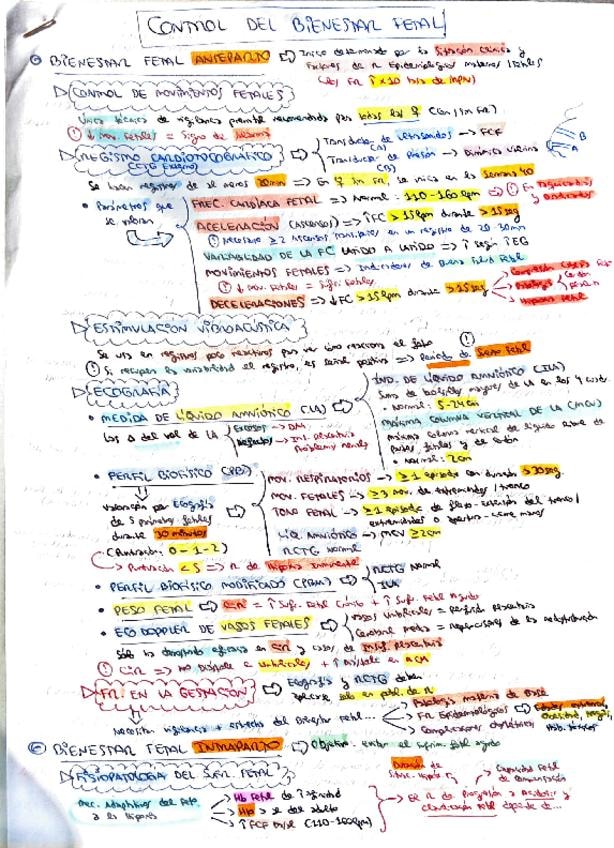 CONTROL DEL BIENESTAR FETAL
BIENESTAR FETAL ANTEPARTO ⇒ Inicio determinado por la situación clínica y
Factores de R Epidemiológicos maternos / fetales
CONTROL DE MOVIMIENTOS FETALES
Única técnica de vigilancia prenatal recomendada para todas las ♀ (Con/sin FR)
↓ Mov. Fetales = Signo de Alarma
REGISTRO CARDIOTOCOGRÁFICO
(CTG Externo)
Transductor de Ultrasonidos → FCF
(A)
Transductor de Presión → Dinámica Uterina
(B)
B
A
Se hacen registros de al menos 20min ⇒ En ♀ sin FR, se inicia en las Semanas 40
Parámetros que
se valoran
FREC. CARDÍACA FETAL ⇒ Normal: 110-160 lpm
ACELERACIÓN (ASCENSOS) ⇒ ↑FC > 15 lpm durante > 15 seg
Necesario ≥ 2 Ascensos transitorios en un registro de 20-30min
VARIABILIDAD DE LA FC LATIDO A LATIDO ⇒ ↑ según ↑EG
MOVIMIENTOS FETALES ⇒ Indicadores de Buena Salud Fetal
↓ Mov. Fetales = Sufr. Fetal
DECELERACIONES ⇒ ↓FC > 15 lpm durante > 15 seg
Hipoxia Fetal
ESTIMULACIÓN VIBROACÚSTICA
Se usa en registros poco reactivos para ver cómo reacciona el feto
Si recupera la variabilidad el registro, es señal positiva ⇒ Periodo de Sueño Fetal
ECOGRAFÍA
MEDIDA DE LÍQUIDO AMNIÓTICO (LA)
Los Δ del vol de LA
Excesos → DM
Defectos → Ins. Placentaria
IND. DE LÍQUIDO AMNIÓTICO (ILA)
Suma de bolsillos mayores de LA en los 4 cuadr.
Normal: 5-24cm
MÁXIMA COLUMNA VERTICAL DE LA (MCV)
máxima columna vertical de líquido libre de
partes fetales y de cordón
Normal: 2cm
PERFIL BIOFÍSICO (PBF)
Valoración por Ecografía
de 5 parámetros fetales
durante 30 minutos
(Puntuación: 0-1-2)
Puntuación < 5 ⇒ R de Hipoxia Inminente
MOV. RESPIRATORIOS → ≥ 1 episodio con duración > 30seg.
MOV. FETALES → ≥ 3 mov. de extremidades / tronco
TONO FETAL → ≥ 1 Episodio de flexo-extensión del tronco/
extremidades o apertura-cierre manos
LÍQ. AMNIÓTICO → MCV ≥ 2cm
RCTG Normal
PERFIL BIOFÍSICO MODIFICADO (PBFM)
RCTG Normal
ILA
PESO FETAL ⇒ CIR = ↑ Sufr. Fetal Crónico + ↑ Sufr. Fetal Agudo
ECO DOPPLER DE VASOS FETALES
Vasos Umbilicales = Perfusión placentaria
Cerebral media = repercusiones de la redistribución
Sólo ha demostrado eficacia en CIR y casos de Insuf. Placentaria
FR. EN LA GESTACIÓN ⇒ Ecografía y RCTG deben
aplicarse solo en pobl. de R
Necesitan vigilancia + estrecha del Bienestar Fetal...
Patología materna de base
FR Epidemiológicos
Complicaciones obstétricas
BIENESTAR FETAL INTRAPARTO ⇒ Objetivo: evitar el sufrim. fetal agudo
FISIOPATOLOGÍA DEL SUFR. FETAL
Mec. Adaptativos del Feto
a la Hipoxia
Hb Fetal de ↑ afinidad
Hb > a del adulto
↑ FCF basal (110-160lpm)
El R de Progresión a Acidosis y
depende de...
Duración de
Capacidad Fetal
de Compensación